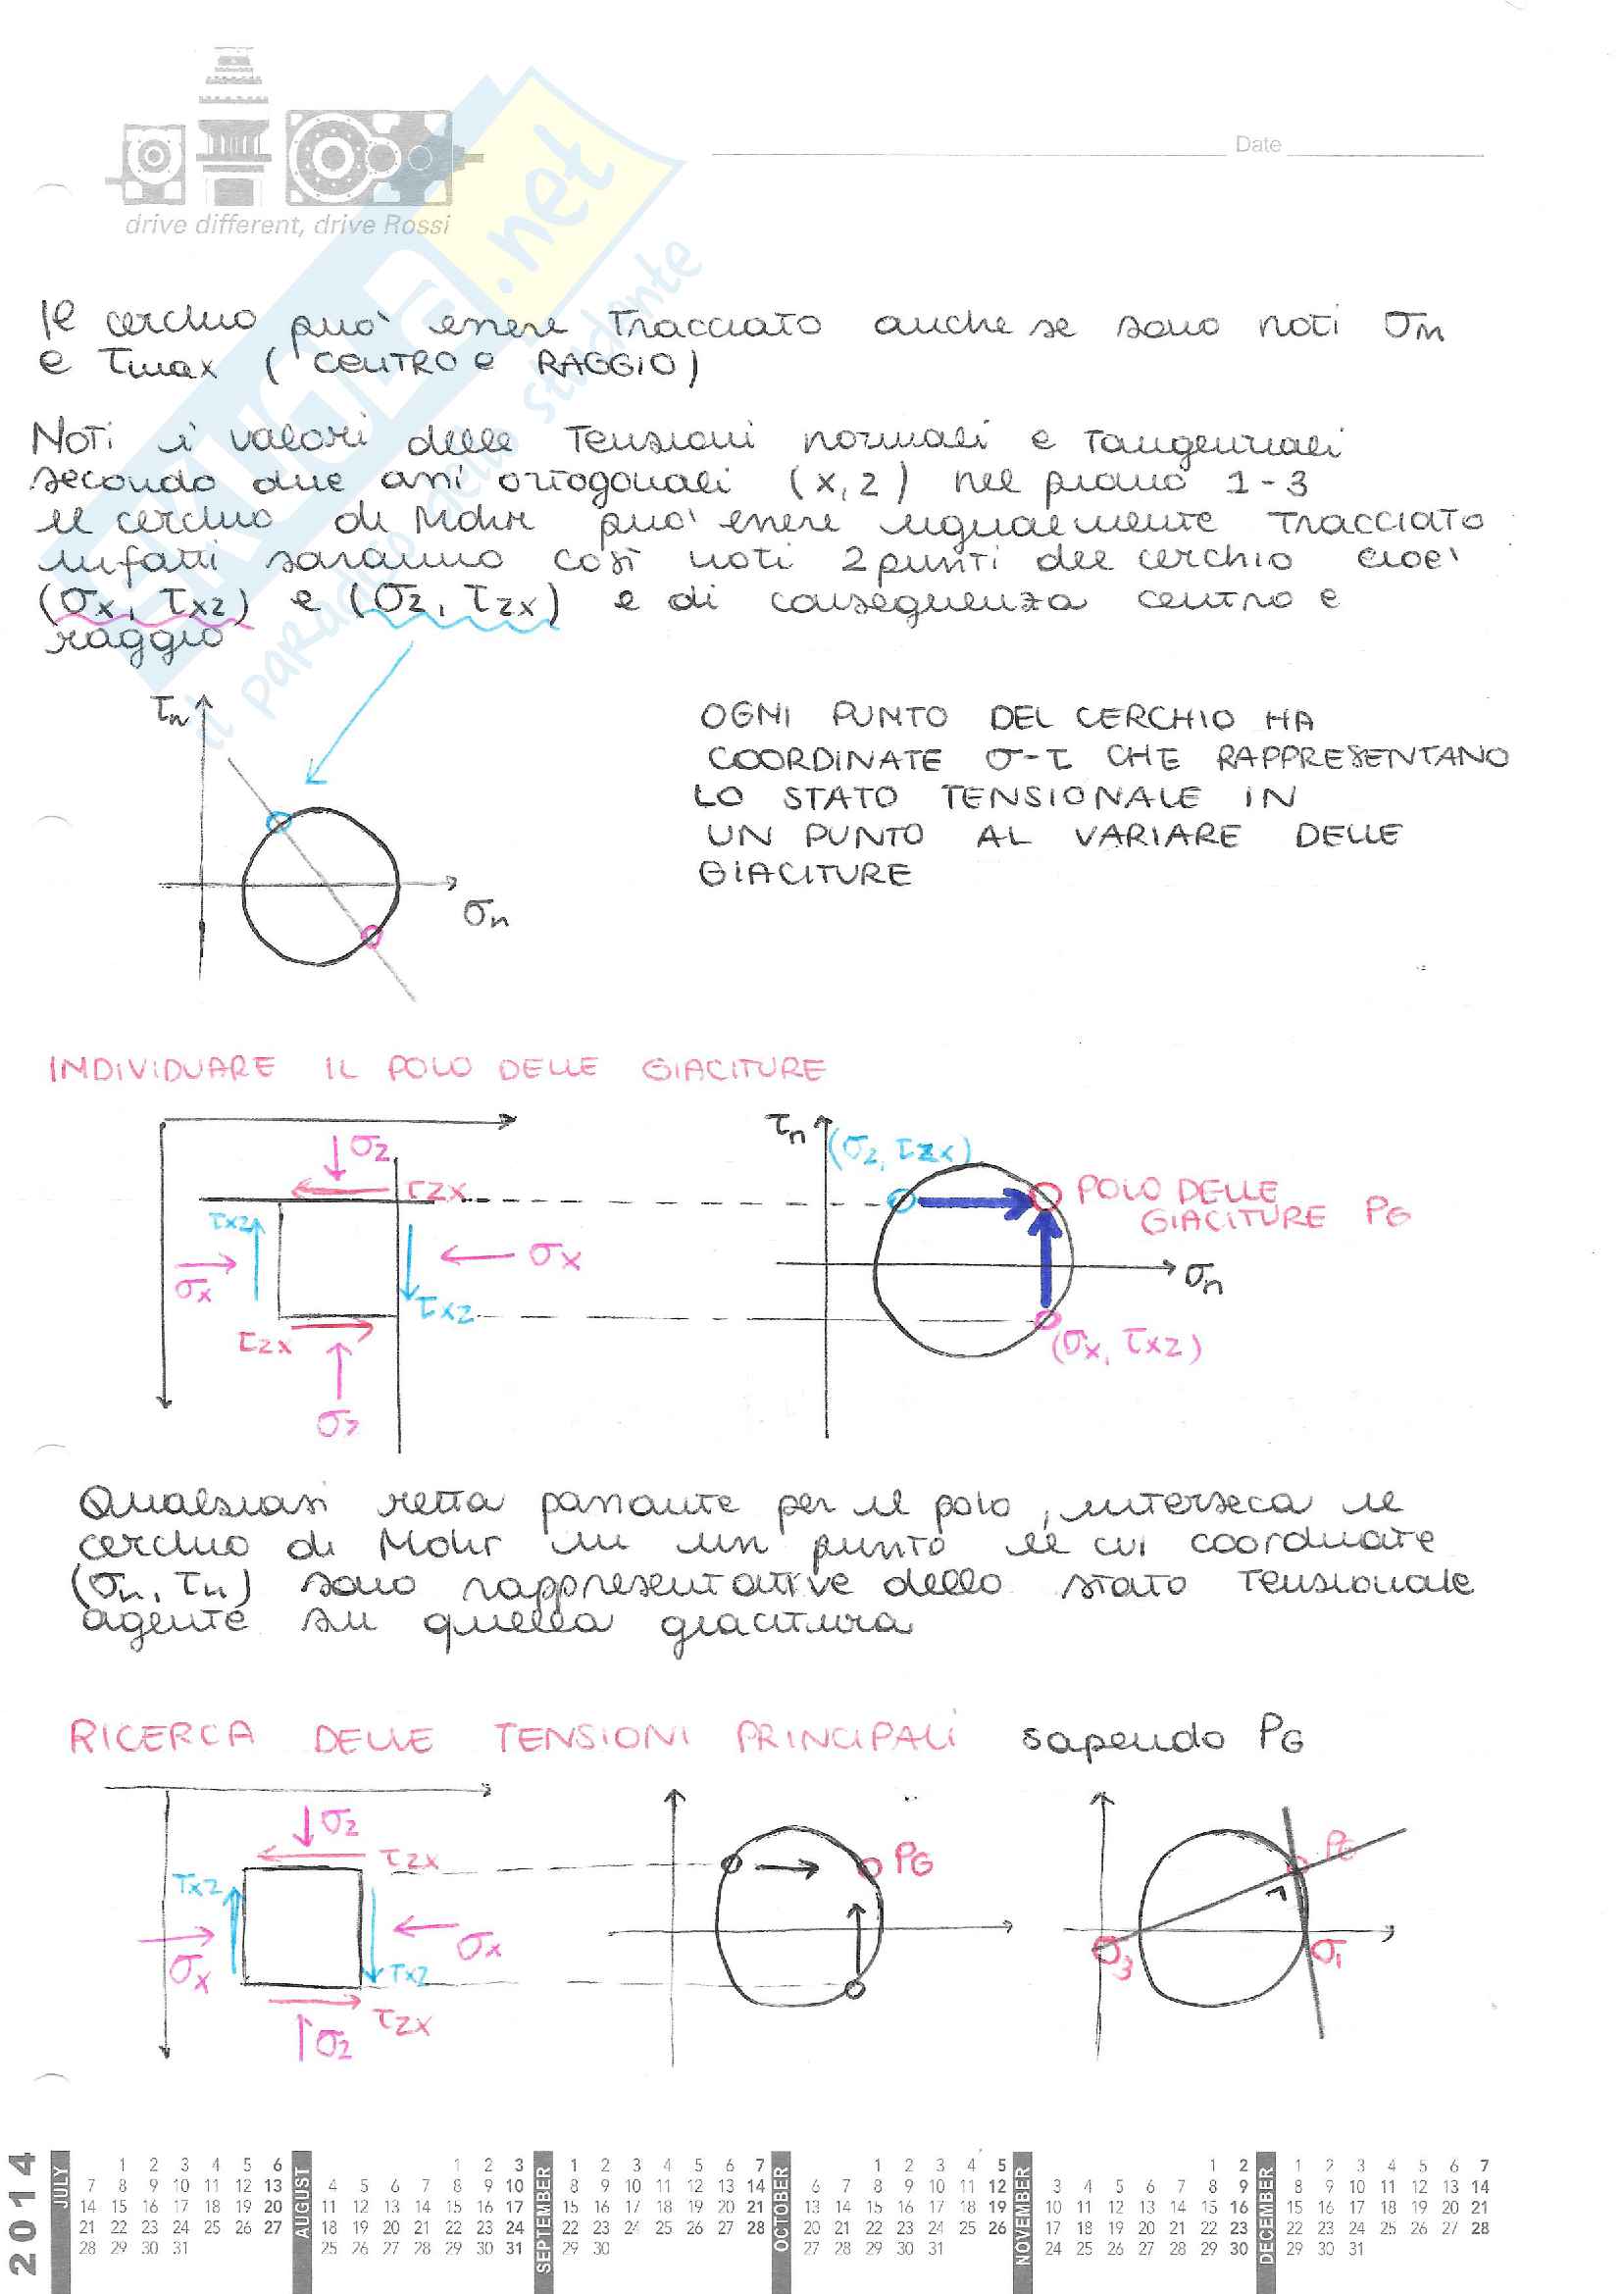 Date
drive different, drive Rossi
SKUOLA.net
il paradiso dello studente
Il cerchio può essere tracciato anche se sono noti σm
e τmax ( CENTRO e RAGGIO)
Noti i valori delle tensioni normali e tangenziali
secondo due assi ortogonali (x,z) nel piano 1-3
il cerchio di Mohr può essere ugualmente tracciato
infatti saranno così noti 2 punti del cerchio cioè
(σx, τxz) e (σz, τzx) e di conseguenza centro e
raggio
τn
σn
OGNI PUNTO DEL CERCHIO HA
COORDINATE σ-τ CHE RAPPRESENTANO
LO STATO TENSIONALE IN
UN PUNTO AL VARIARE DELLE
GIACITURE
INDIVIDUARE IL POLO DELLE GIACITURE
σz
τzx
τxz
σx
σx
τxz
τzx
σz
τn
(σz, τzx)
POLO DELLE
GIACITURE PG
σn
(σx, τxz)
Qualsiasi retta passante per il polo, interseca il
cerchio di Mohr in un punto le cui coordinate
(σn, τn) sono rappresentative dello stato tensionale
agente su quella giacitura
RICERCA DELLE TENSIONI PRINCIPALI sapendo PG
σz
τzx
τxz
σx
σx
τxz
τzx
σz
PG
PG
σ3
σ1
2014
JULY
1 2 3 4 5 6
7 8 9 10 11 12 13
14 15 16 17 18 19 20
21 22 23 24 25 26 27
28 29 30 31
AUGUST
1 2 3
4 5 6 7 8 9 10
11 12 13 14 15 16 17
18 19 20 21 22 23 24
25 26 27 28 29 30 31
SEPTEMBER
1 2 3 4 5 6 7
8 9 10 11 12 13 14
15 16 17 18 19 20 21
22 23 24 25 26 27 28
29 30
OCTOBER
1 2 3 4 5
6 7 8 9 10 11 12
13 14 15 16 17 18 19
20 21 22 23 24 25 26
27 28 29 30 31
NOVEMBER
1 2
3 4 5 6 7 8 9
10 11 12 13 14 15 16
17 18 19 20 21 22 23
24 25 26 27 28 29 30
DECEMBER
1 2 3 4 5 6 7
8 9 10 11 12 13 14
15 16 17 18 19 20 21
22 23 24 25 26 27 28
29 30 31